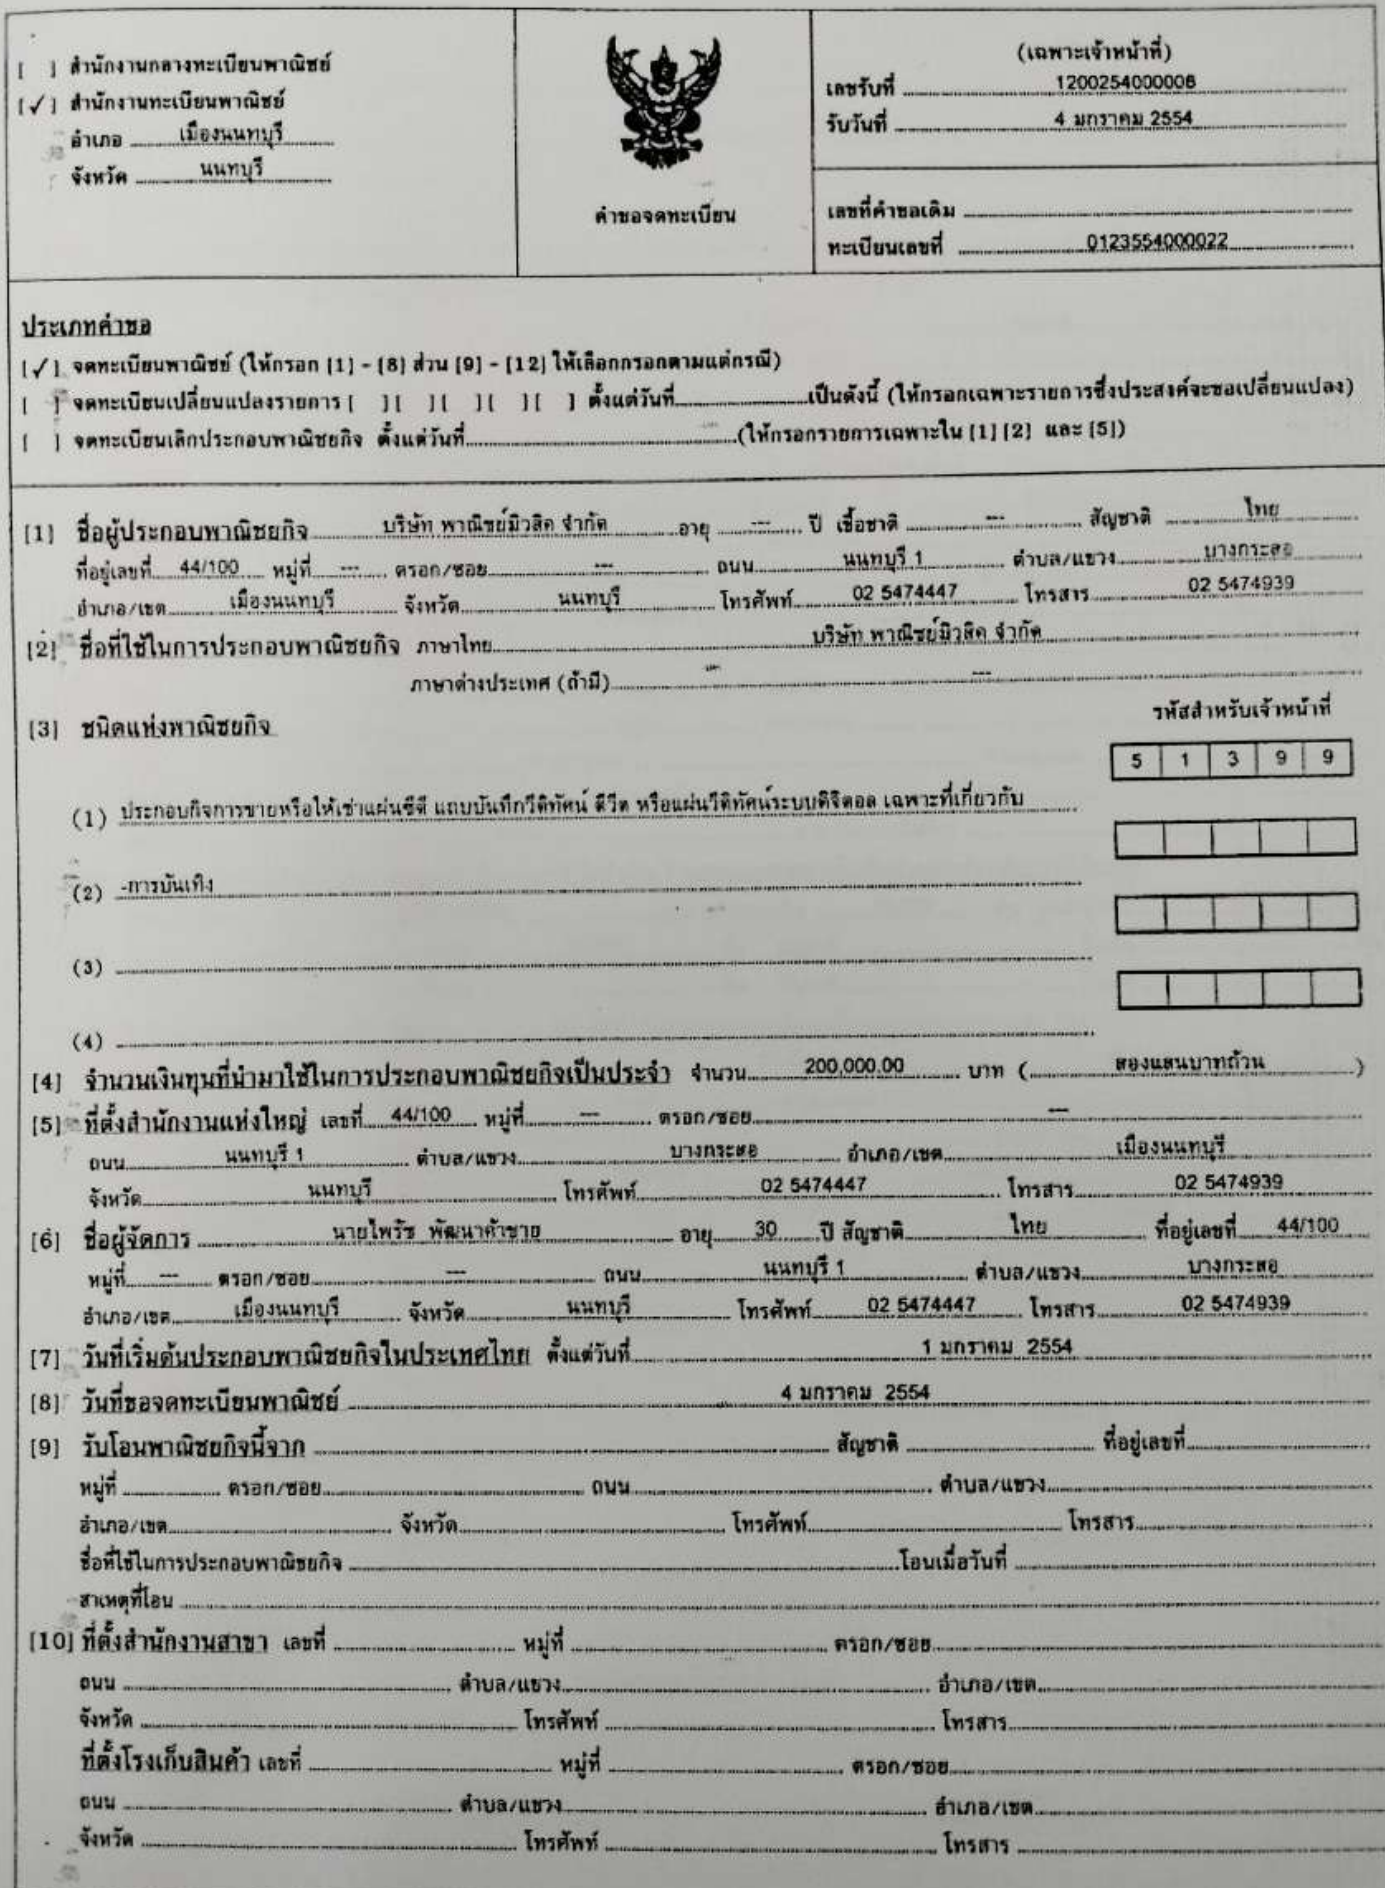 [ ] สำนักงานกลางทะเบียนพาณิชย์
[✓] สำนักงานทะเบียนพาณิชย์
อำเภอ เมืองนนทบุรี
จังหวัด นนทบุรี
คำขอจดทะเบียน
(เฉพาะเจ้าหน้าที่)
เลขรับที่ 1200254000008
รับวันที่ 4 มกราคม 2554
เลขที่คำขอเดิม
ทะเบียนเลขที่ 0123554000022
ประเภทคำขอ
[✓] จดทะเบียนพาณิชย์ (ให้กรอก [1] - [8] ส่วน [9] - [12] ให้เลือกกรอกตามแต่กรณี)
[ ] จดทะเบียนเปลี่ยนแปลงรายการ [ ] [ ] [ ] [ ] ตั้งแต่วันที่ เป็นดังนี้ (ให้กรอกเฉพาะรายการซึ่งประสงค์จะขอเปลี่ยนแปลง)
[ ] จดทะเบียนเลิกประกอบพาณิชยกิจ ตั้งแต่วันที่ (ให้กรอกรายการเฉพาะใน [1] [2] และ [5])
[1] ชื่อผู้ประกอบพาณิชยกิจ บริษัท พาณิชย์มิวสิค จำกัด อายุ --- ปี เชื้อชาติ --- สัญชาติ ไทย
ที่อยู่เลขที่ 44/100 หมู่ที่ --- ตรอก/ซอย --- ถนน นนทบุรี 1 ตำบล/แขวง บางกระสอ
อำเภอ/เขต เมืองนนทบุรี จังหวัด นนทบุรี โทรศัพท์ 02 5474447 โทรสาร 02 5474939
[2] ชื่อที่ใช้ในการประกอบพาณิชยกิจ ภาษาไทย บริษัท พาณิชย์มิวสิค จำกัด
ภาษาต่างประเทศ (ถ้ามี) ---
[3] ชนิดแห่งพาณิชยกิจ รหัสสำหรับเจ้าหน้าที่
5 1 3 9 9
(1) ประกอบกิจการขายหรือให้เช่าแผ่นซีดี แถบบันทึกวีดิทัศน์ ดีวีด หรือแผ่นวีดิทัศน์ระบบดิจิตอล เฉพาะที่เกี่ยวกับ
(2) -การบันเทิง
(3)
(4)
[4] จำนวนเงินทุนที่นำมาใช้ในการประกอบพาณิชยกิจเป็นประจำ จำนวน 200,000.00 บาท ( สองแสนบาทถ้วน )
[5] ที่ตั้งสำนักงานแห่งใหญ่ เลขที่ 44/100 หมู่ที่ --- ตรอก/ซอย ---
ถนน นนทบุรี 1 ตำบล/แขวง บางกระสอ อำเภอ/เขต เมืองนนทบุรี
จังหวัด นนทบุรี โทรศัพท์ 02 5474447 โทรสาร 02 5474939
[6] ชื่อผู้จัดการ นายไพรัช พัฒนาค้าขาย อายุ 30 ปี สัญชาติ ไทย ที่อยู่เลขที่ 44/100
หมู่ที่ --- ตรอก/ซอย --- ถนน นนทบุรี 1 ตำบล/แขวง บางกระสอ
อำเภอ/เขต เมืองนนทบุรี จังหวัด นนทบุรี โทรศัพท์ 02 5474447 โทรสาร 02 5474939
[7] วันที่เริ่มต้นประกอบพาณิชยกิจในประเทศไทย ตั้งแต่วันที่ 1 มกราคม 2554
[8] วันที่ขอจดทะเบียนพาณิชย์ 4 มกราคม 2554
[9] รับโอนพาณิชยกิจนี้จาก สัญชาติ ที่อยู่เลขที่
หมู่ที่ ตรอก/ซอย ถนน ตำบล/แขวง
อำเภอ/เขต จังหวัด โทรศัพท์ โทรสาร
ชื่อที่ใช้ในการประกอบพาณิชยกิจ โอนเมื่อวันที่
สาเหตุที่โอน
[10] ที่ตั้งสำนักงานสาขา เลขที่ หมู่ที่ ตรอก/ซอย
ถนน ตำบล/แขวง อำเภอ/เขต
จังหวัด โทรศัพท์ โทรสาร
ที่ตั้งโรงเก็บสินค้า เลขที่ หมู่ที่ ตรอก/ซอย
ถนน ตำบล/แขวง อำเภอ/เขต
จังหวัด โทรศัพท์ โทรสาร